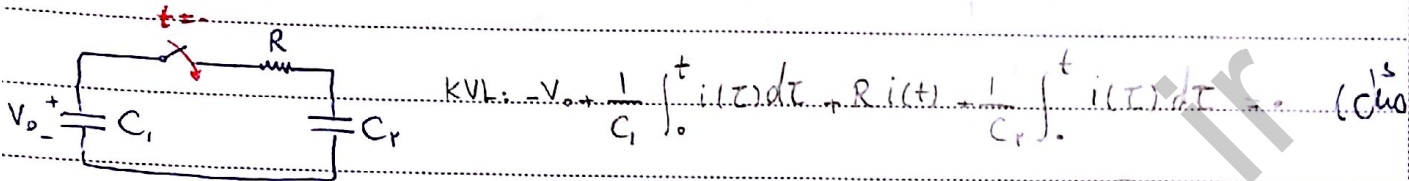 t=۰
R
V₀ + - C₁
C₂
KVL: -V₀ + 1/C₁ ∫₀ᵗ i(τ)dτ + R i(t) + 1/C₂ ∫₀ᵗ i(τ)dτ = ۰ (مثال
ir